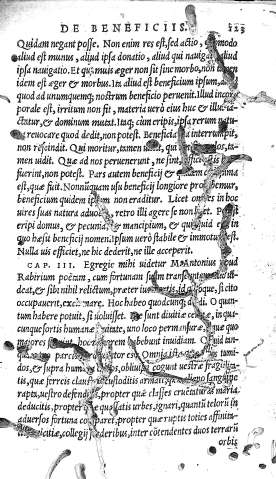 DE BENEFICIIS. 223
Quidam negant posse. Non enim res est, sed actio, quomodo
aliud est munus, aliud ipsa donatio, aliud qui nauigat, aliud
ipsa nauigatio. Et quamuis æger non sit sine morbo, non tamen
idem est æger & morbus. Ita aliud est beneficium ipsum, aliud
quod ad unumquemque nostrum beneficio peruenit. Illud incor
porale est, irritum non fit, materia uero eius huc & illuc
ctatur, & dominum mutat. Itaque cum eripis, ipsa rerum natu
ra reuocare quod dedit, non potest. Beneficia interrumpit,
non rescindit. Qui moritur, tamen uixit, qui oculos, ta-
men uidit. Quæ ad nos peruenerunt, ne sint, effici potest, ne
fuerint, non potest. Pars autem beneficij & quidem certissima
est, quæ fuit. Nonnunquam usu beneficij longiore prohibemur,
beneficium quidem ipsum non eraditur. Licet omnes in hoc
uires suas natura aduocet, retro illi agere se non licet. Potest
eripi domus, & pecunia, & mancipium, & quicquid est in
quo hæsit beneficij nomen. Ipsum uero stabile & immotum est.
Nulla uis efficiet, ne hic dederit, ne ille acceperit.
CAP. III. Egregie mihi uidetur M Antonius apud
Rabirium poëtam, cum fortunam suam transeuntem alio
deat, & sibi nihil relictum, præter ius mortis, id quoque, si cito
occupauerit, exclamare. Hoc habeo quodcunque dedi. O quan-
tum habere potuit, si uoluisset. Hæ sunt diuitiæ certæ, in qua-
cunque sortis humanæ leuitate, uno loco permansuræ, quæ quo
maiores fuerint, hoc minorem habebunt inuidiam.
Omnia ista tumi-
dos, & supra humana elatos, obliuisci cogunt uestræ fragilita-
tis, quæ ferreis claustris custoditis armati, quæ alieno sanguine
rapta, uestro defenditis, propter quæ classes cruentaturas maria
deducitis, propter quæ quassatis urbes, ignari, quantum telorum in
aduersos fortuna comparet, propter quæ ruptis toties affinita-
tis, amicitiæ, collegij fœderibus, inter contendentes duos terrarum
orbis